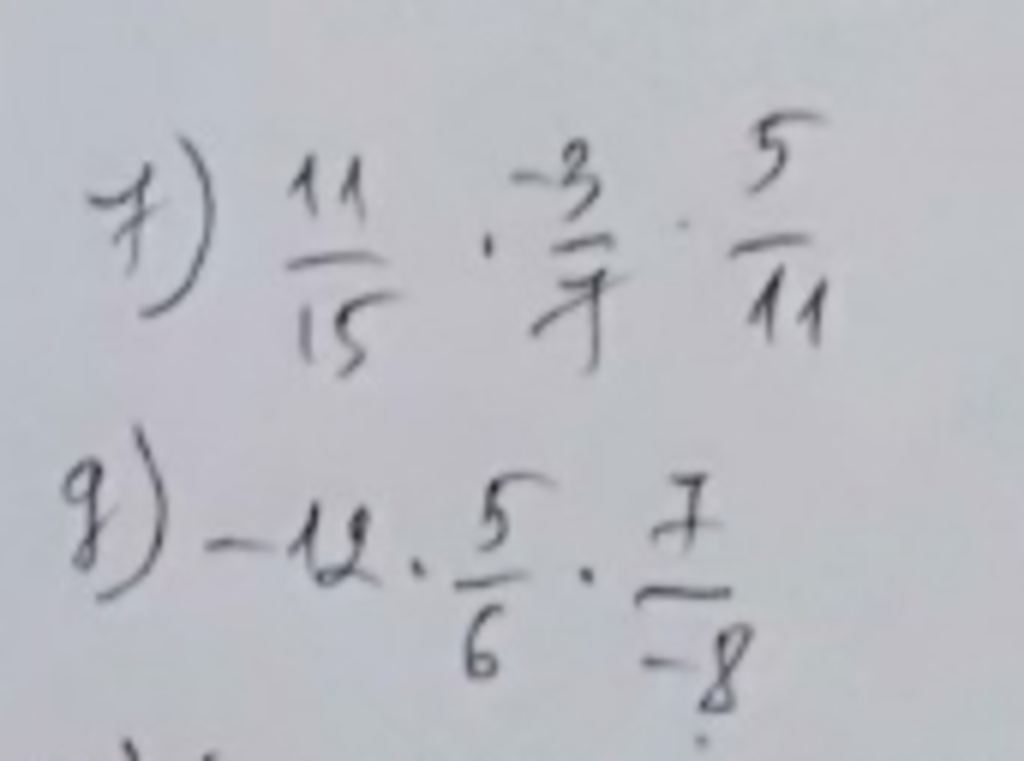 7) 11/15 · -3/7 · 5/11
8) -12 · 5/6 · 7/-8